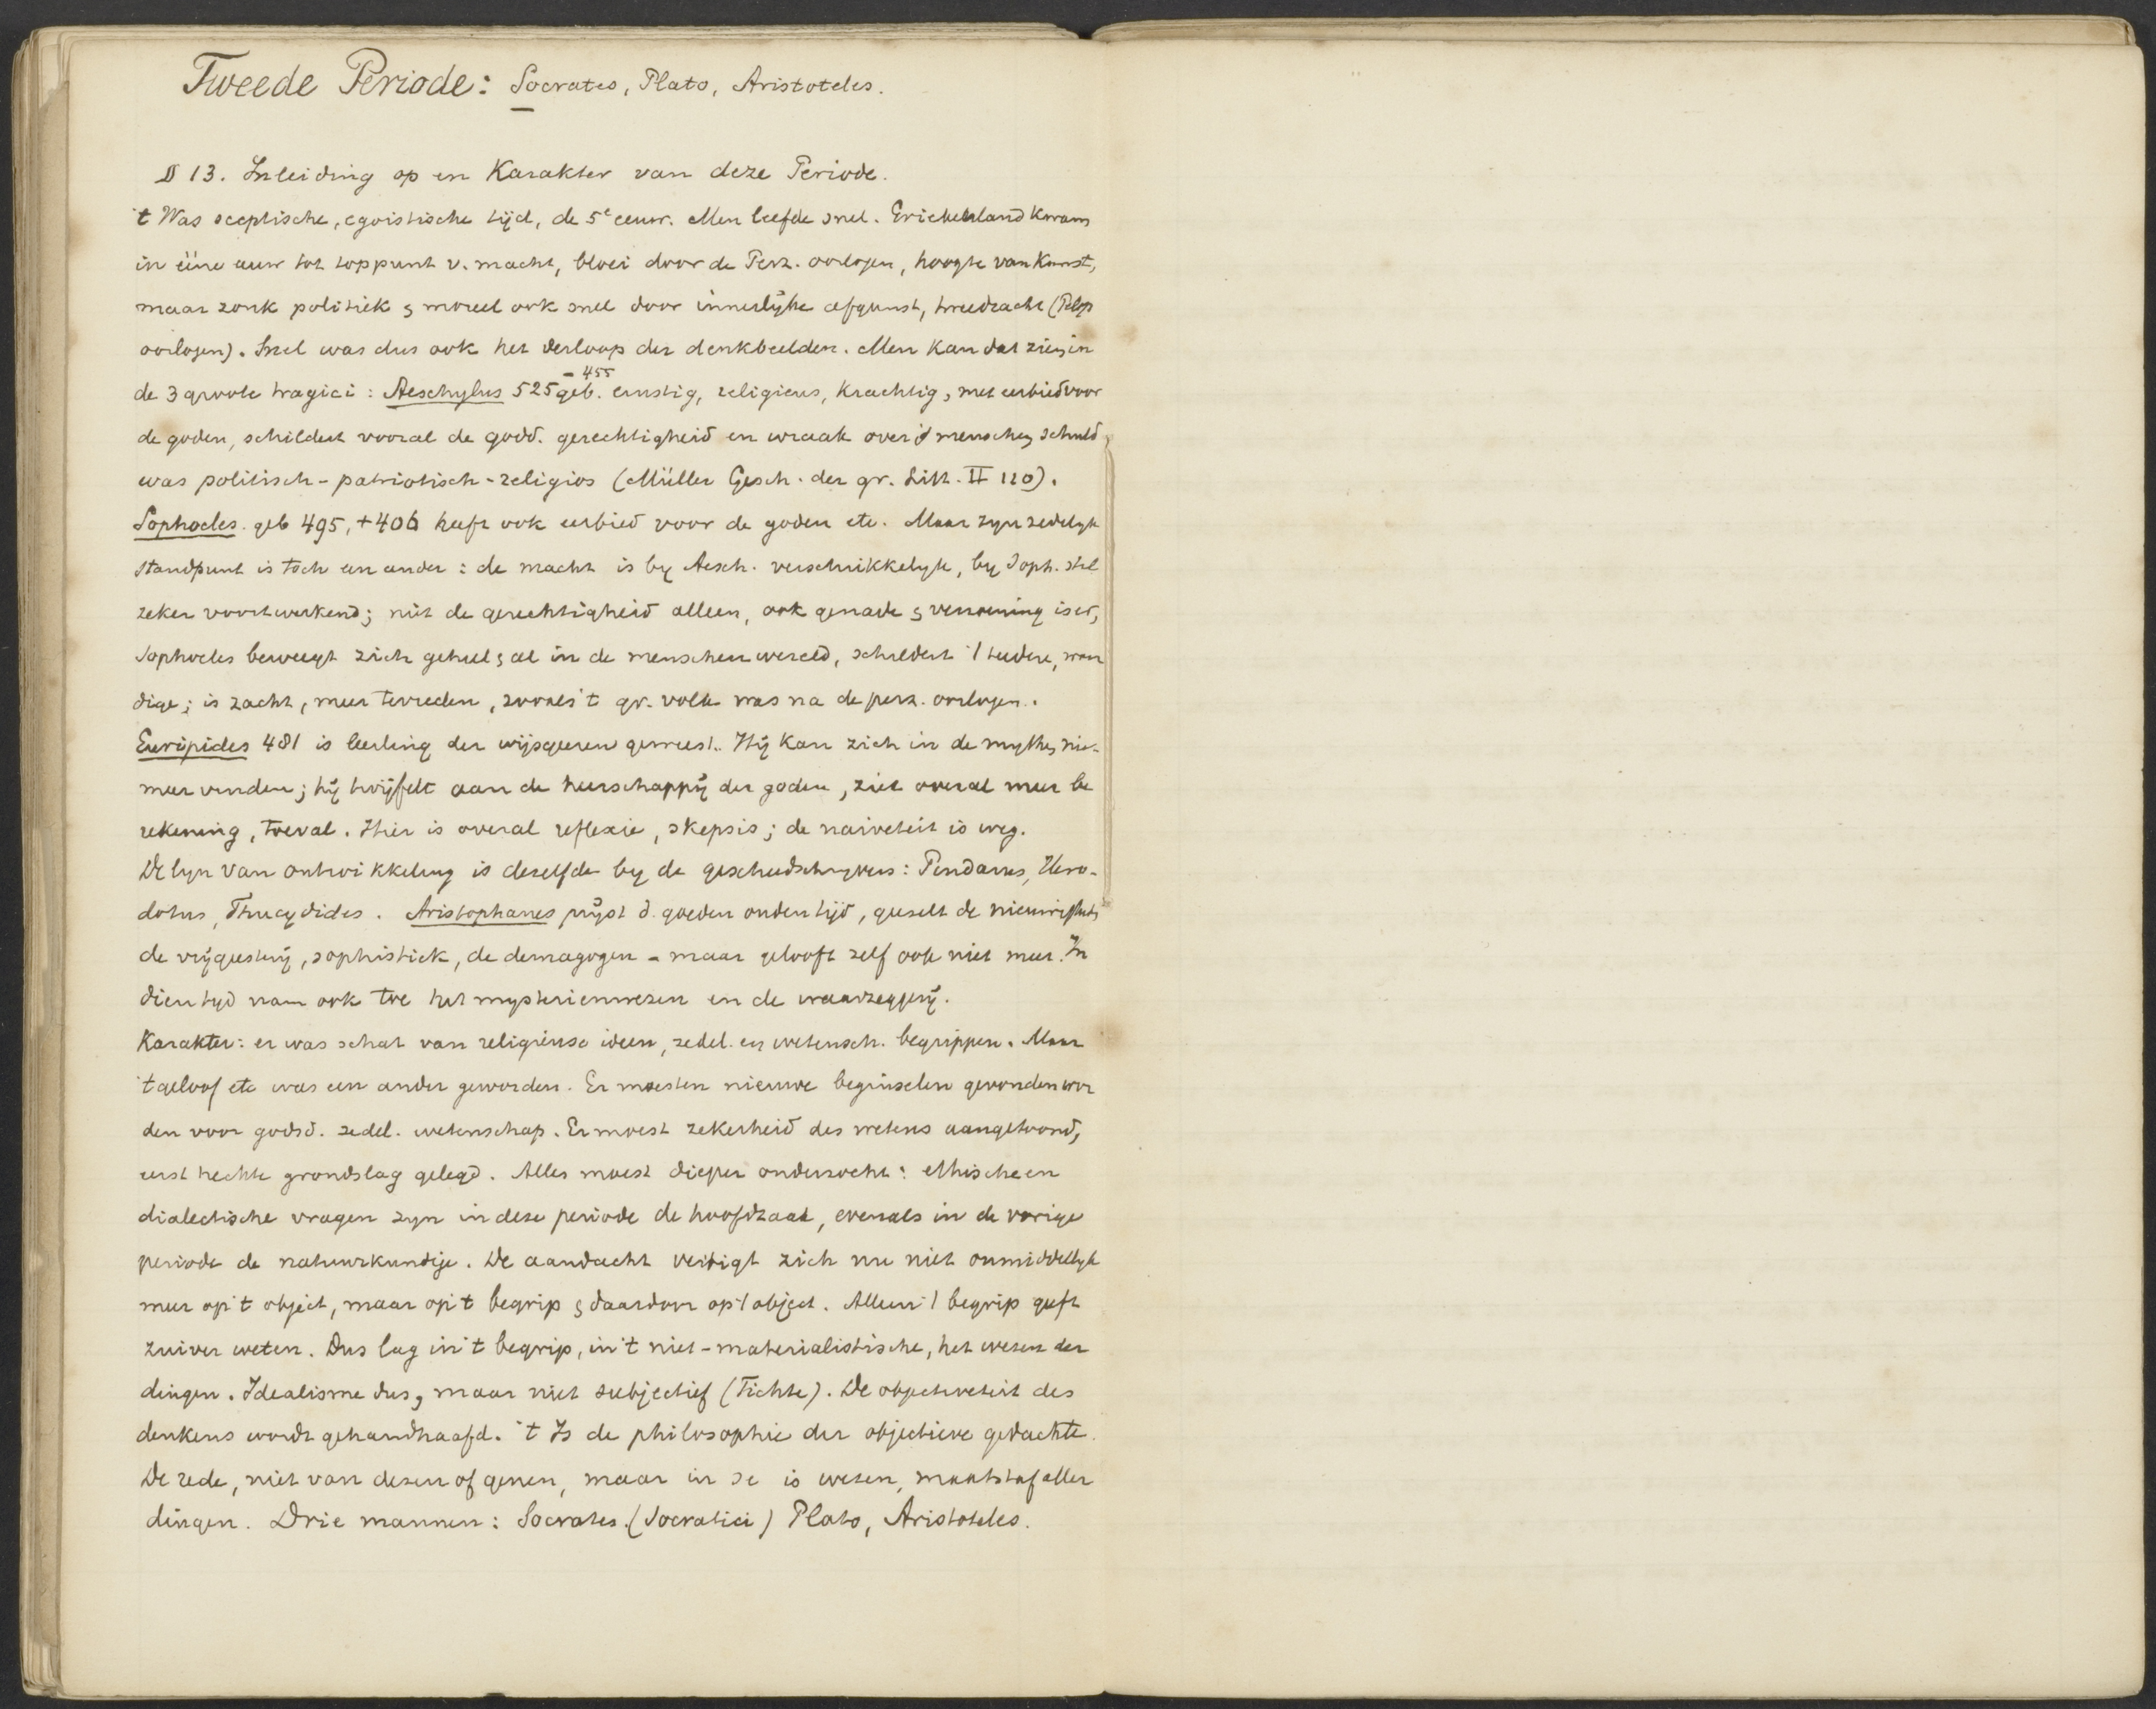 Tweede Periode: Socrates, Plato, Aristoteles.
§ 13. Inleiding op en Karakter van deze Periode.
't Was sceptische, egoistische tijd, de 5e eeuw. Men leefde snel. Griekenland kwam
in ééne eeuw tot toppunt v. macht, bloei door de Perz. oorlogen, hoogte van Kunst,
maar zonk politiek & moreel ook snel door innerlijke afgunst, tweedracht (Pelop
oorlogen). Snel was dus ook het verloop der denkbeelden. Men kan dat zien in
de 3 groote tragici: Aeschylus 525 geb. - 455 ernstig, religieus, krachtig, met eerbied voor
de goden, schildert vooral de godd. gerechtigheid en wraak over d menschen schuld,
was politisch-patriotisch-religios (Müller Gesch. der gr. Litt. II 120).
Sophocles. geb 495, +406 heeft ook eerbied voor de goden etc. Maar zyn zedelyk
standpunt is toch een ander: de macht is by Aesch. verschrikkelyk, by Soph. stil
zeker voortwerkend; niet de gerechtigheid alleen, ook genade & verzoening is er,
Sophocles beweegt zich geheel & al in de menschenwereld, schildert 't teedere, waar
dige; is zacht, meer tevreden, zooals 't gr. volk was na de perz. oorlogen.
Euripides 481 is leerling der wijsgeeren geweest. Hij kan zich in de mythen nie-
meer vinden; hij twijfelt aan de heerschappij der goden, ziet overal meer be
rekening, toeval. Hier is overal reflexie, skepsis; de naiveteit is weg.
De lyn van ontwikkeling is dezelfde by de geschiedschryvers: Pindarus, Hero-
dotus, Thucydides. Aristophanes prijst d. goeden ouden tijd, geeselt de nieuwigheden
de vrijgeesterij, sophistiek, de demagogen - maar gelooft zelf ook niet meer. In
dien tyd nam ook toe het mysterienwezen en de waarzeggerij.
Karakter: er was schat van religieuse ideen, zedel. en wetensch. begrippen. Maar
't geloof etc was een ander geworden. Er moesten nieuwe beginselen gevonden wor
den voor godsd. zedel. wetenschap. Er moest zekerheid des wetens aangetoond,
eerst hechte grondslag gelegd. Alles moest dieper onderzocht: ethische en
dialectische vragen zyn in deze periode de hoofdzaak, evenals in de vorige
periode de natuurkundige. De aandacht vestigt zich nu niet onmiddellyk
meer op 't object, maar op 't begrip & daardoor op 't object. Alleen 't begrip geeft
zuiver weten. Dus lag in 't begrip, in 't niet-materialistische, het wezen der
dingen. Idealisme dus, maar niet subjectief (Fichte). De objectiviteit des
denkens wordt gehandhaafd. 't Is de philosophie der objectieve gedachte.
De rede, niet van dezen of genen, maar in se is wezen, maatstaf aller
dingen. Drie mannen: Socrates. (Socratici) Plato, Aristoteles.